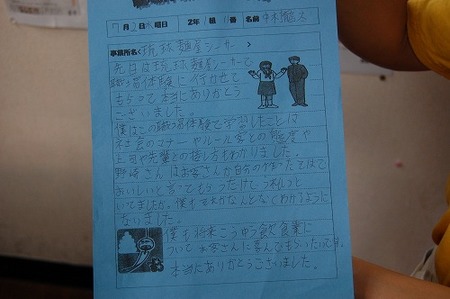 7月2日水曜日 2年1組11番 名前
事業所名<琉球麺屋シーサー>
先日は琉球麺屋シーサーで
職場体験に行かせて
もらって本当にありがとう
ございました。
僕はこの職場体験で学習したことは
社会のマナーやルール客との態度や
上司や先輩との接し方もわかりました。
野崎さんはお客さんが自分の作った
おいしいと言ってもらうだけで
いてましたが、僕も
ないました。
僕も将来こうゆう飲食業に
ついてお客さんに喜んでもらいたいです。
本当にありがとうございました。